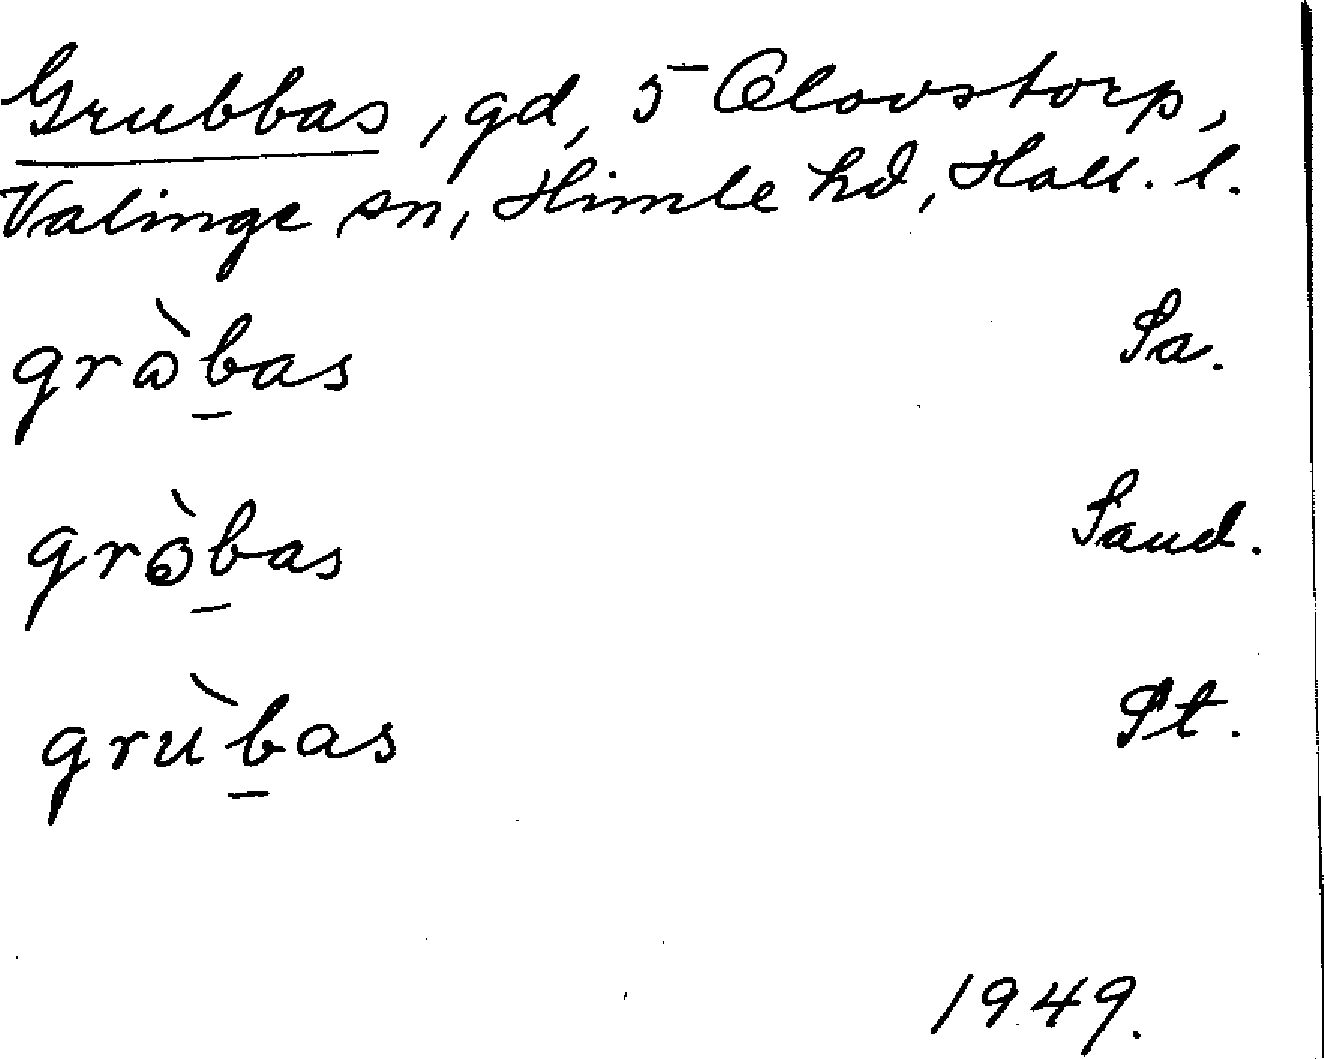 Grubbas, gd, 5 Olovstorp,
Valinge sn, Himle hd, Hall. l.
grɷ̀b̲as Sa.
grɔ̀b̲as Sand.
grùb̲as St.
1949.